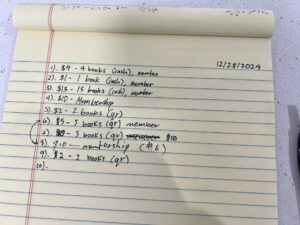 12/28/2024
1). $4 - 4 books (cash), member
2). $1 - 1 book (cash), member
3). $15 - 15 books (cash), member
4). $10 - Membership
5). $2 - 2 books (qr)
6). $5 - 5 books (qr) member
7). - 5 books (qr) member $10
8). membership (#6)
9). $2 - 2 books (qr)
10).